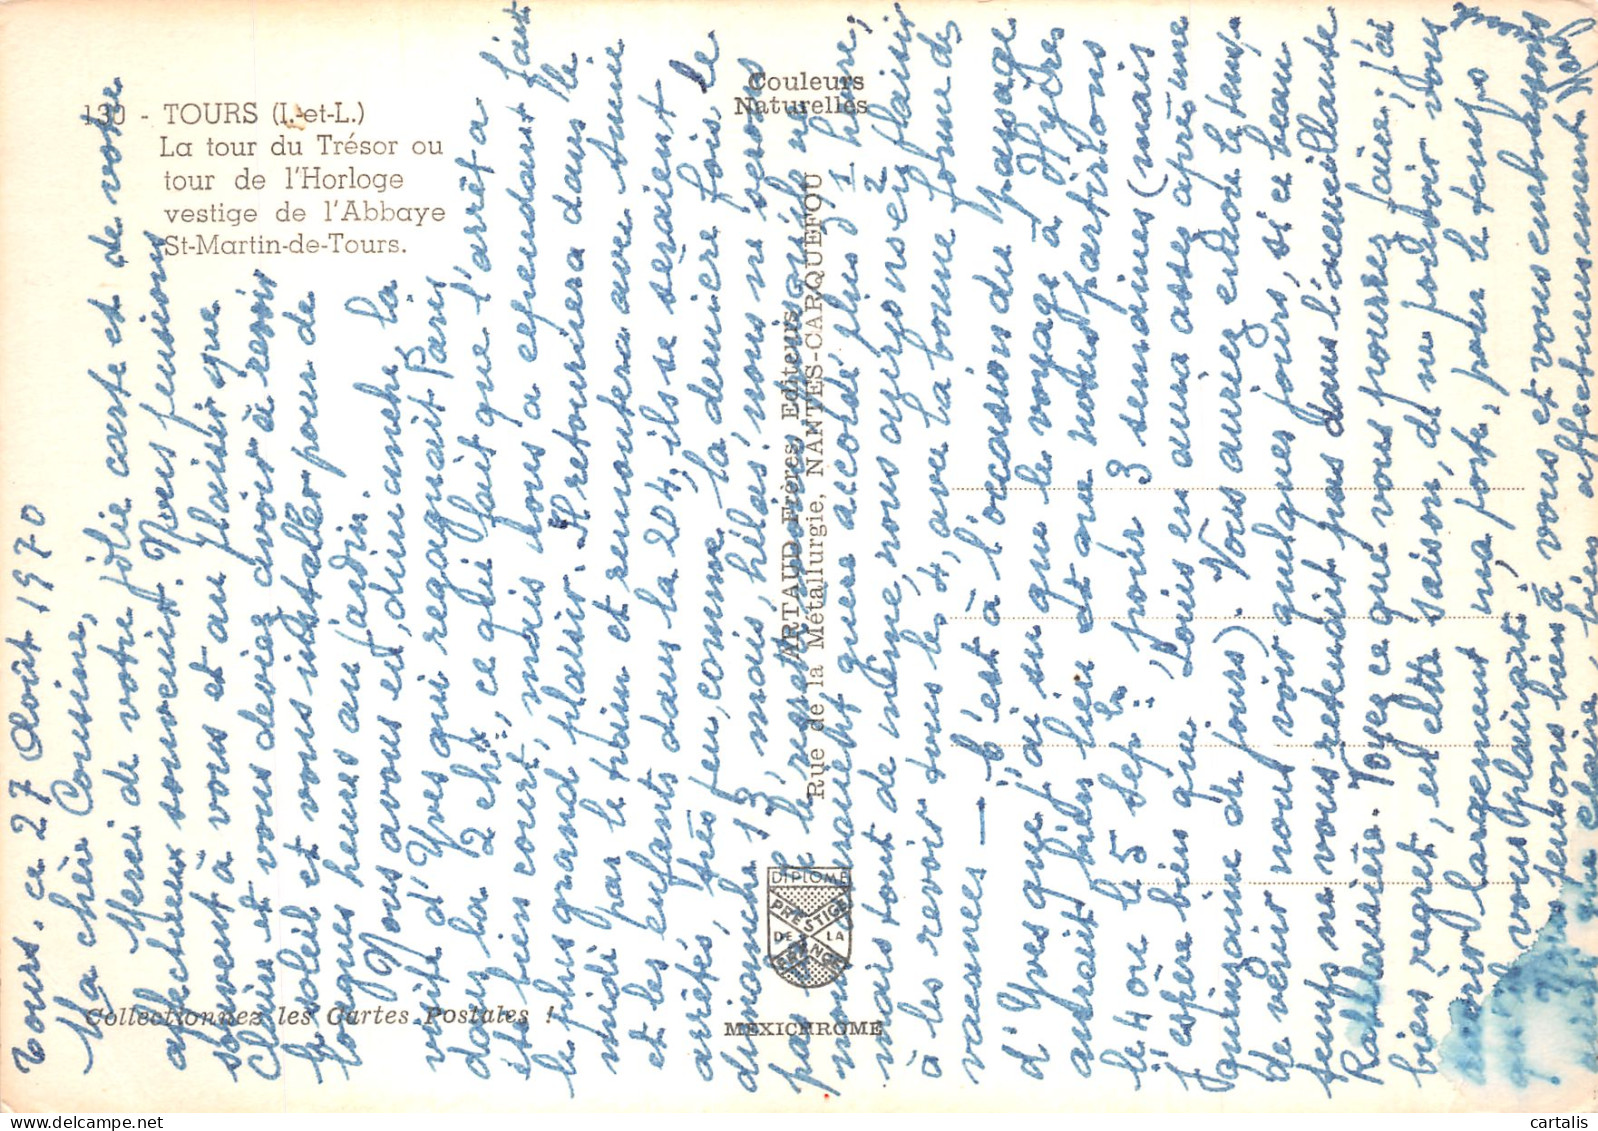 130 - TOURS (I.-et-L.)
La tour du Trésor ou
tour de l'Horloge
vestige de l'Abbaye
St-Martin-de-Tours.
Couleurs
Naturelles
ARTAUD Frères, Editeurs
Rue de la Métallurgie, NANTES-CARQUEFOU
DIPLOME
PRESTIGE
DE LA
FRANCE
MEXICHROME
Collectionnez les Cartes Postales !
Tours. ce 27 Août 1970
Ma chère Cousine,
Merci de votre jolie carte et de votre
affectueux souvenir. Nous pensions
souvent à vous et au plaisir que
Claire et vous deviez avoir à revoir
le soleil et vous installer pour de
longues heures au jardin.
Nous avons eu, dimanche la
visite d'Yves qui regagnait Paris
dans la 2 ch., ce qui fait que l'arrêt a
été bien court, mais nous a cependant fait
le plus grand plaisir. Il retournera dans le
midi par le train et remontera avec Annie
et les enfants dans la 204, ils se seraient
arrêtés, très peu, comme la dernière fois le
dimanche 13, mais, hélas! nous ne serons
pas là, ressort impossible
manquent guère accolé plus d'1 heure,
2
mais tout de même, nous aurions eu ce plaisir
à les revoir tous les 4, avec la bonne forme des
vacances — C'est à l'occasion du passage
d'Yves que j'ai su que le voyage à Hyères
aurait bien lieu et que nous partirions
le 4 ou le 5 sept. pour 3 semaines (mais
j'espère bien que Louis en aura assez après une
quinzaine de jours). Vous auriez eu de le temps
de venir nous voir quelques jours, si ce beau
temps ne vous retendait pas dans l'accueillante
Rablassière. Voyez ce que vous pourrez faire; j'ai
bien regret, en cette saison, de ne pouvoir vous
ouvrir largement ma porte, pour le temps
qu'il vous plairait!
Nous pensons bien à vous et vous embrassons
ma chère Claire, bien affectueusement
cartalis